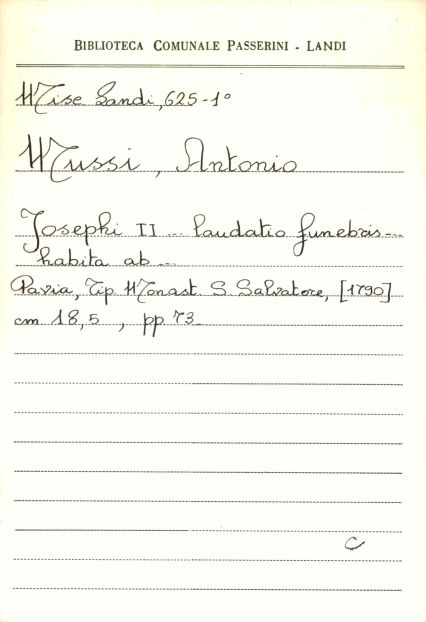 BIBLIOTECA COMUNALE PASSERINI - LANDI
Misc Landi, 625-1°
Mussi, Antonio
Josephi II ... laudatio funebris ...
habita ab ...
Pavia, Tip. Monast. S. Salvatore, [1790]
cm 18,5 , pp 73
C